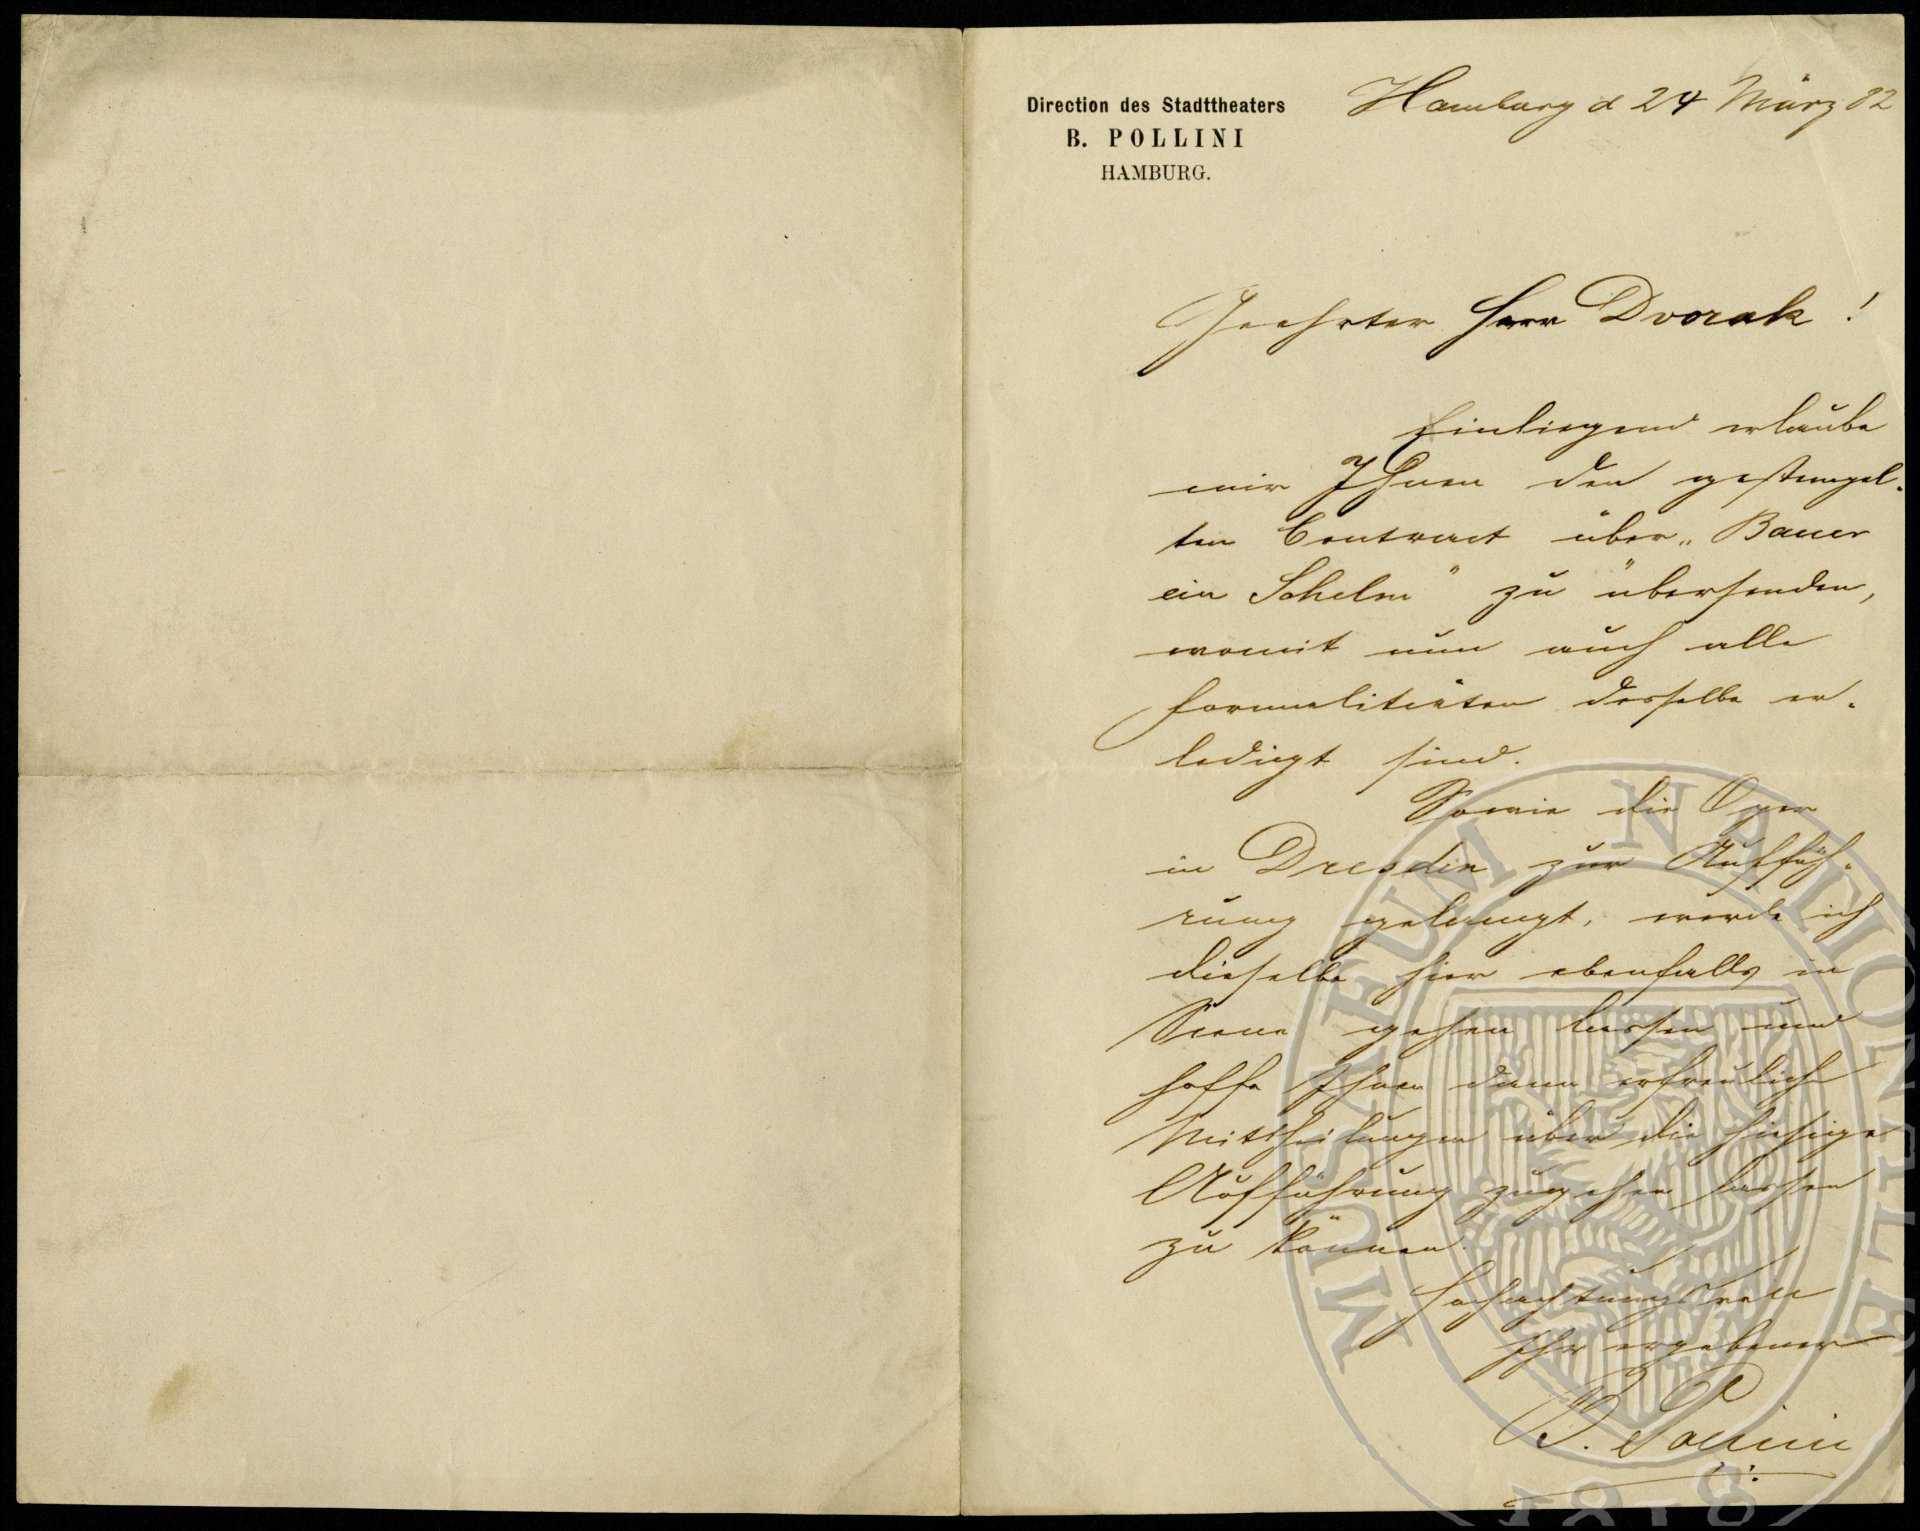 Direction des Stadttheaters
B. POLLINI
HAMBURG.
Hamburg d 24 März 82
Geehrter Herr Dvorak!
Einliegend erlaube
mir Ihnen den gestempel-
ten Contract über „Bauer
ein Schelm" zu übersenden,
womit nun auch alle
Formalitäten desselbe er-
ledigt sind.
Sowie die Oper
in Dresden zur Auffüh-
rung gelangt, werde ich
dieselbe hier ebenfalls in
Scene gehen lassen und
hoffe Ihnen dann erfreuliche
Mittheilungen über die hiesige
Aufführung zugehen lassen
zu können.
Hochachtungsvoll
Ihr ergebener
B. Pollini
MUSAEUM NATIONALE
1818